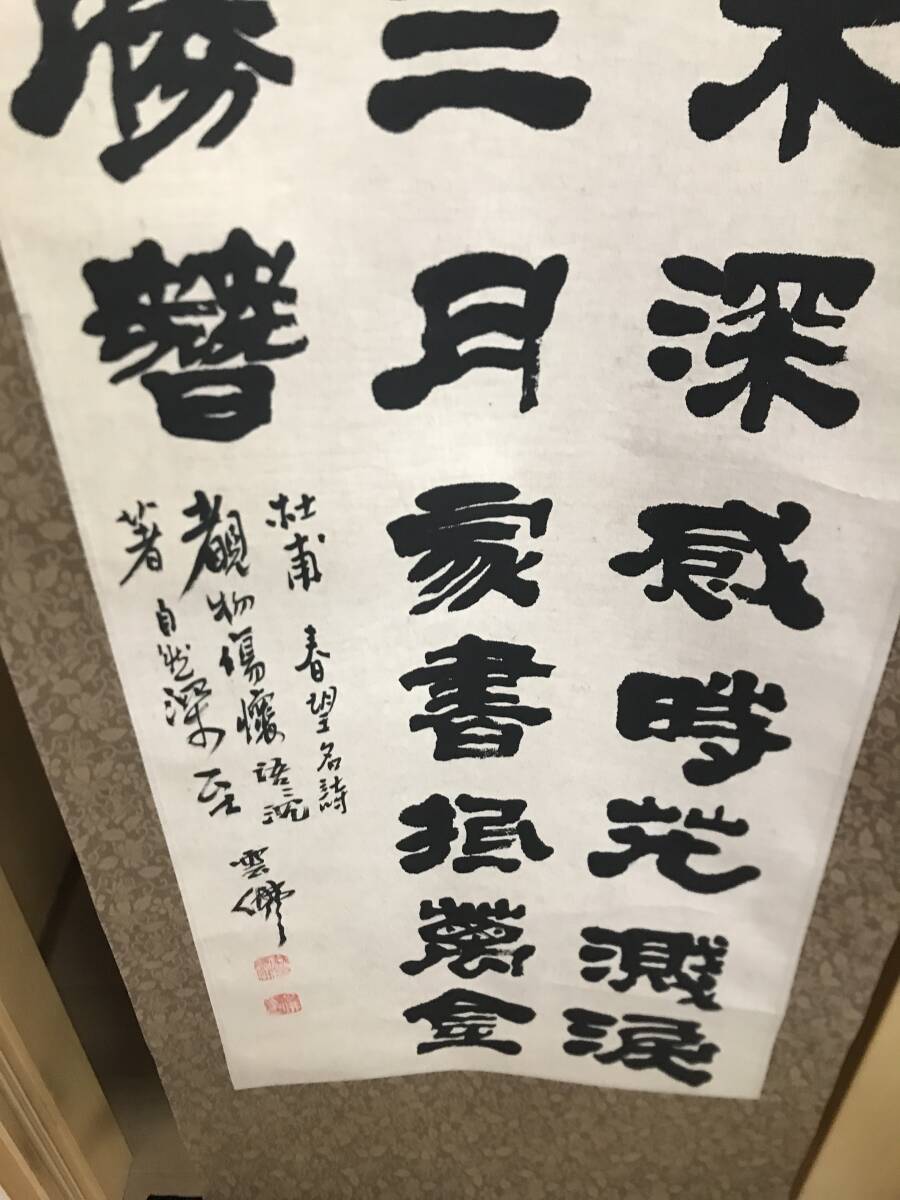 木深感時花濺淚
三月家書抵萬金
勝簪
杜甫 春望名詩
觀物傷懷語沉
著 自然深